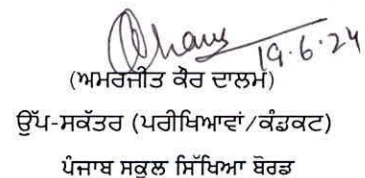 19.6.24
(ਅਮਰਜੀਤ ਕੌਰ ਦਾਲਮ)
ਉੱਪ-ਸਕੱਤਰ (ਪਰੀਖਿਆਵਾਂ/ਕੰਡਕਟ)
ਪੰਜਾਬ ਸਕੂਲ ਸਿੱਖਿਆ ਬੋਰਡ